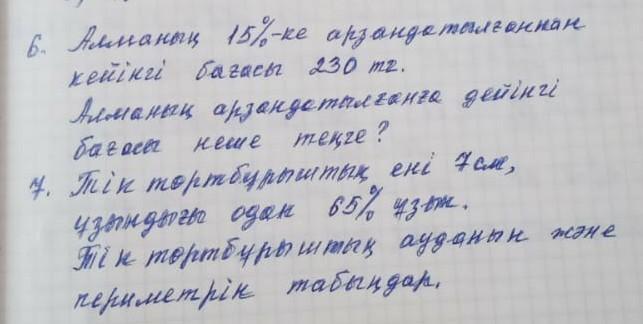 6. Алманың 15%-ке арзандатылғаннан
кейінгі бағасы 230 тг.
Алманың арзандатылғанға дейінгі
бағасы неше теңге?
7. Тік төртбұрыштың ені 7см,
ұзындығы одан 65% ұзын.
Тік төртбұрыштың ауданын және
периметрін табыңдар.